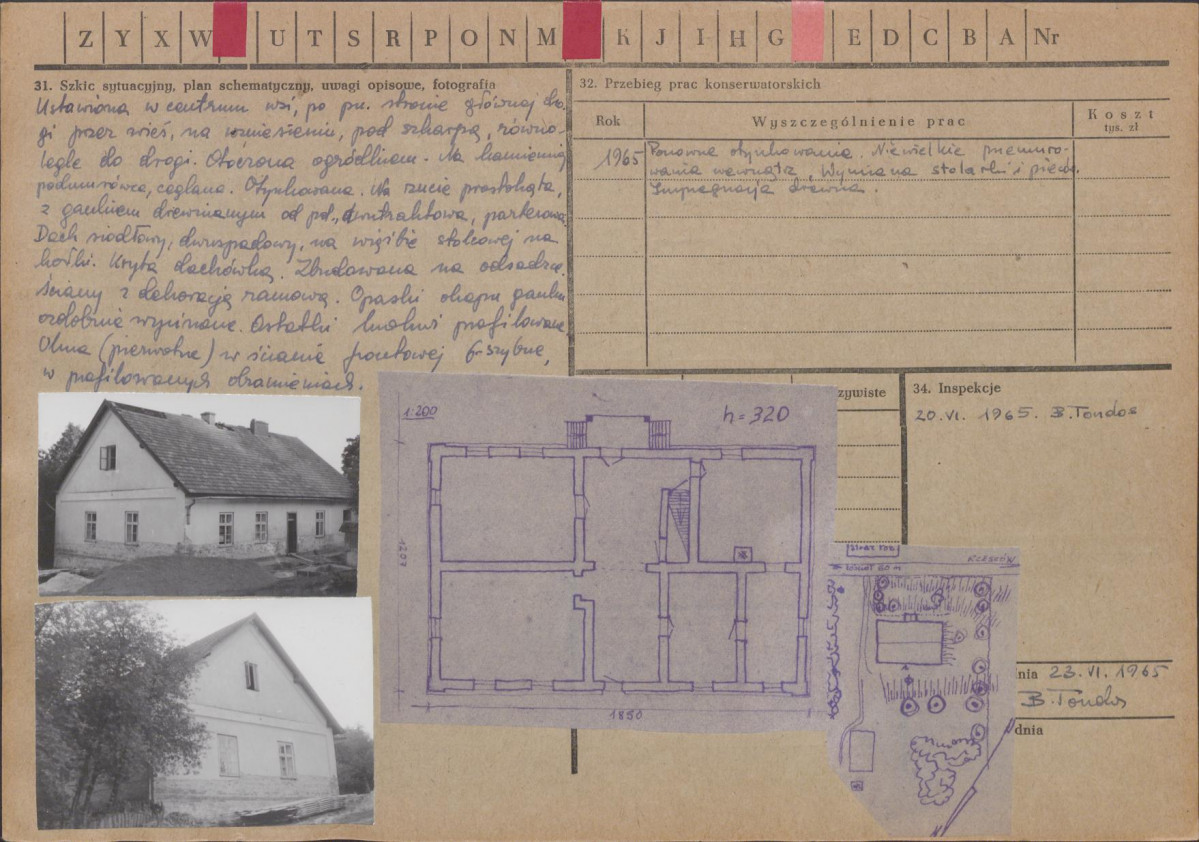 Z Y X W U T S R P O N M K J I H G E D C B A Nr
31. Szkic sytuacyjny, plan schematyczny, uwagi opisowe, fotografia
Ustawiona w centrum wsi, po pn. stronie głównej dro-
gi przez wieś, na wzniesieniu, pod szkarpą, równo-
legle do drogi. Otoczona ogródkiem. Na kamiennej
podmurówce, ceglana. Otynkowana. Na rzucie prostokąta,
z gankiem drewnianym od pd., dwutraktowa, parterowa.
Dach siodłowy, dwuspadowy, na więźbie stolcowej na
kozłki. Kryta dachówką. Zbudowana na odsadzce.
Ściany z dekoracją ramową. Opaski okapu ganku
ozdobnie wycinane. Ostatki profilowane
Okna (pierwotne) w ścianie frontowej 6-szybne,
w profilowanych obramieniach.
32. Przebieg prac konserwatorskich
Rok Wyszczególnienie prac Koszt
tys. zł
1965 Ponowne otynkowanie. Niewielkie przemuro-
wania wewnątrz. Wymiana stolarki i pieców.
Impregnacja drewna.
zywiste
34. Inspekcje
20.VI. 1965. B. Tondos
1:200
h=320
1200
1850
RZESZÓW
60 m
N
nia 23.VI.1965
B. Tondos
dnia